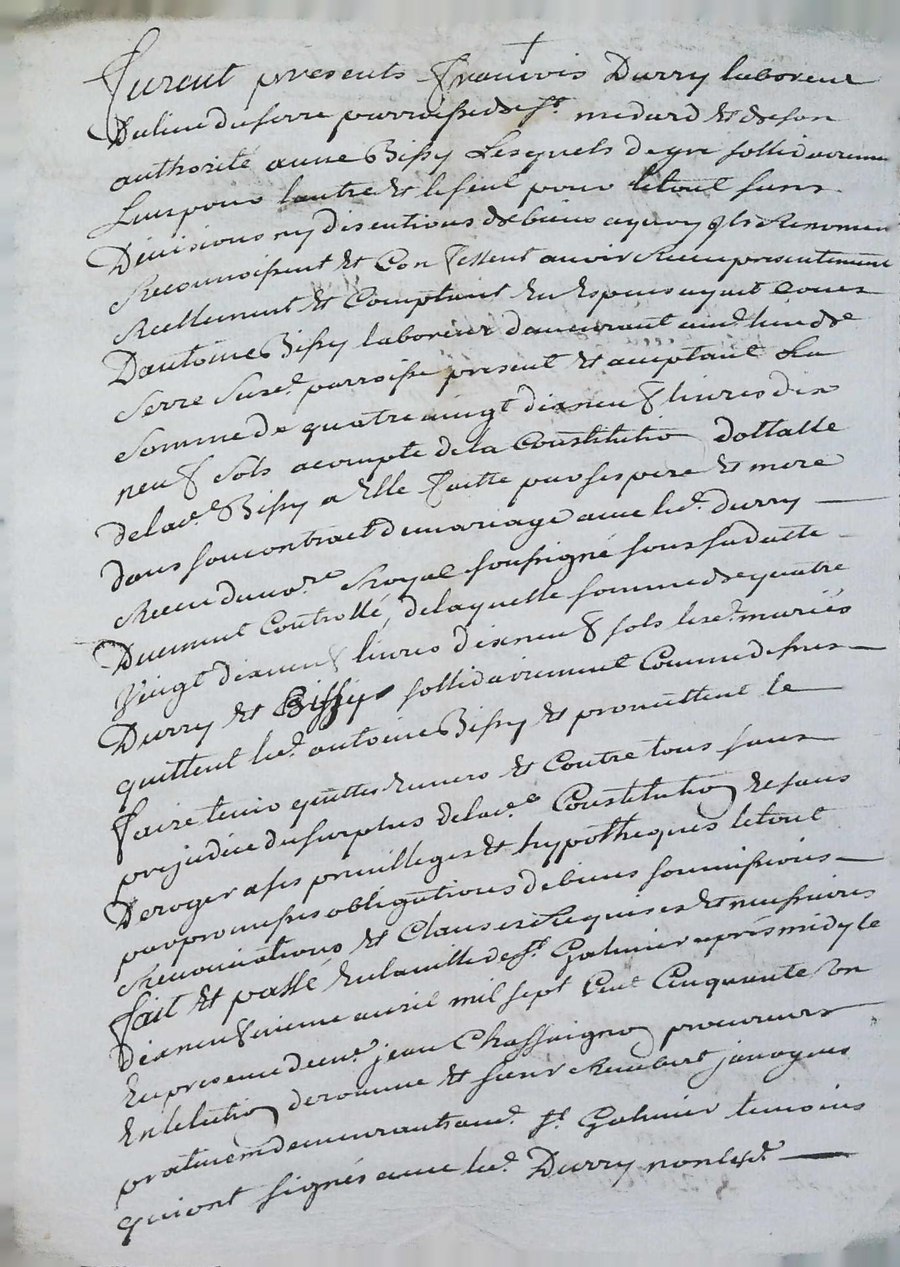 furent presents françois Durry laboreur
Du lieu du serre parroisse de st. medard et de son
authorité anne Bissy Lesquels de gre sollidairement
Lun pour lautre et le seul pour letout sans
Divisions ny discutions de biens aquoy ils Renoncent
Reconnoissent et Confessent avoir Receu presentement
Reellement et Comptant En Especes ayant cours
Dantoine Bissy laboreur demeurant aud. lieu de
Serre Susd. parroisse present et aceptant La
Somme de quatrevingt dixneuf livres dix
neuf sols acompte de la Constitution dottalle
de lad. Bissy a Elle faitte par ses pere et mere
dans son contract de mariage avec led. durry
Receu du nore. Royal soussigné sous sa datte
Duement Controllé, de laquelle somme de quatre
Vingt dixneuf livres dixneuf sols lesd. mariés
Durry et Bissy sollidairement Comme dessus
quittent led. antoine Bissy et promettent le
faire tenir quitte Envers et Contre tous sans
prejudice du surplus de lad. Constitution et sans
Deroger a ses privilleges et hypotheques letout
par promesses obligations de biens soumissions
Renonciations et Clauses Requises et necessaires
fait et passé En la ville de st. Galmier aprés midy le
Dixneufvieme avril mil sept Cent Cinquante un
En presence de me. jean Chassaignon procureur
En lelection de roanne et sieur Rembert janoyeur
praticien demeurants aud. st. Galmier temoins
qui ont signés avec led. Durry non lad.